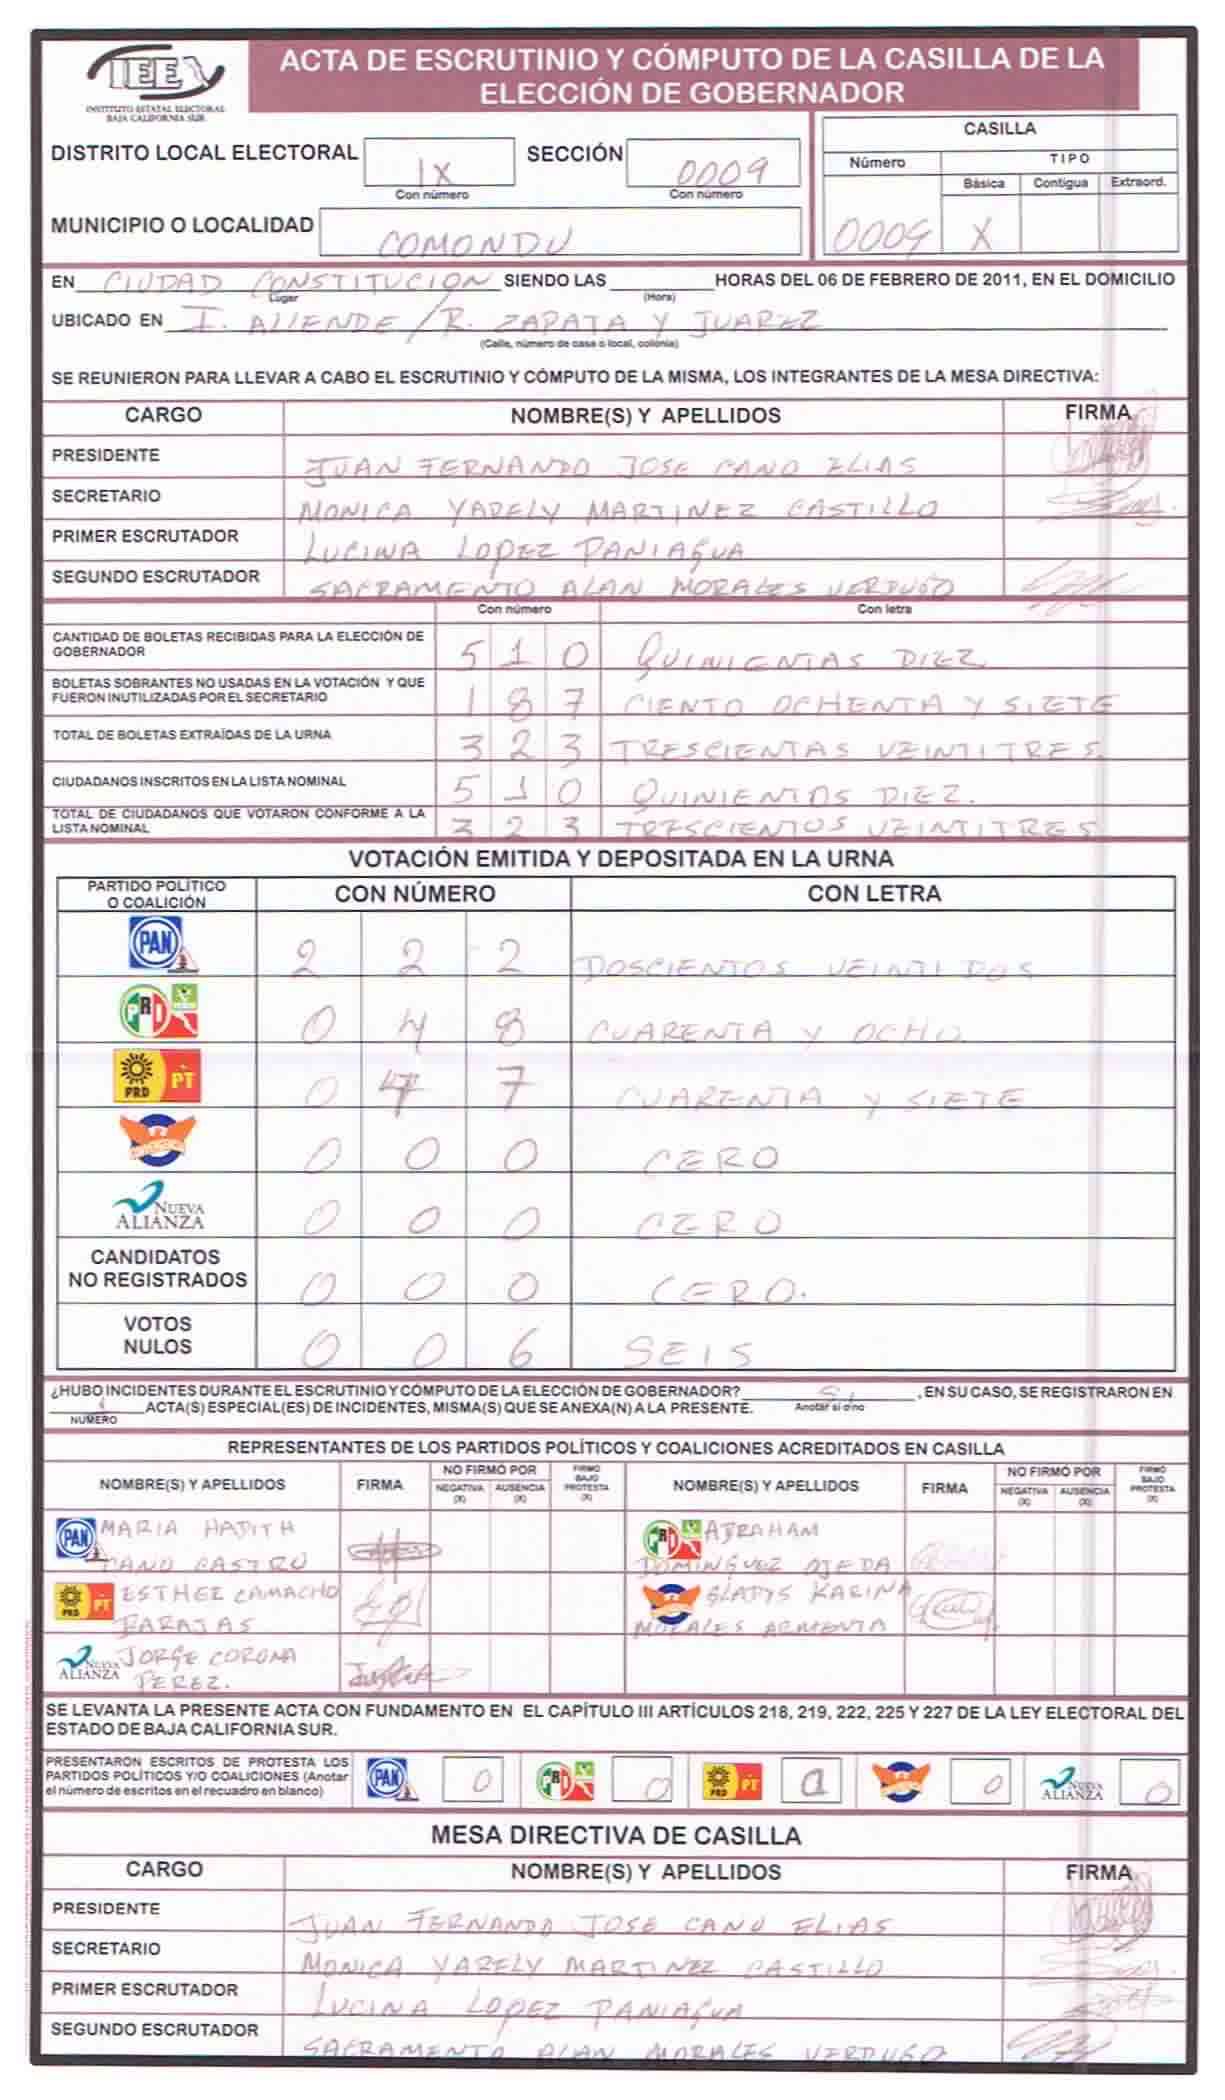 IEEX
INSTITUTO ESTATAL ELECTORAL
BAJA CALIFORNIA SUR
ACTA DE ESCRUTINIO Y CÓMPUTO DE LA CASILLA DE LA
ELECCIÓN DE GOBERNADOR
DISTRITO LOCAL ELECTORAL IX SECCIÓN 0009
Con número Con número
CASILLA
Número TIPO
Básica Contigua Extraord.
0009 X
MUNICIPIO O LOCALIDAD COMONDU
EN CIUDAD CONSTITUCION SIENDO LAS HORAS DEL 06 DE FEBRERO DE 2011, EN EL DOMICILIO
Lugar (Hora)
UBICADO EN I. ALLENDE / R. ZAPATA Y JUAREZ
(Calle, número de casa o local, colonia)
SE REUNIERON PARA LLEVAR A CABO EL ESCRUTINIO Y CÓMPUTO DE LA MISMA, LOS INTEGRANTES DE LA MESA DIRECTIVA:
CARGO NOMBRE(S) Y APELLIDOS FIRMA
PRESIDENTE JUAN FERNANDO JOSE CANO ELIAS
SECRETARIO MONICA YARELY MARTINEZ CASTILLO
PRIMER ESCRUTADOR LUCINA LOPEZ PANIAGUA
SEGUNDO ESCRUTADOR SACRAMENTO ALAN MORALES VERDUGO
Con número Con letra
CANTIDAD DE BOLETAS RECIBIDAS PARA LA ELECCIÓN DE
GOBERNADOR 5 1 0 QUINIENTAS DIEZ
BOLETAS SOBRANTES NO USADAS EN LA VOTACIÓN Y QUE
FUERON INUTILIZADAS POR EL SECRETARIO 1 8 7 CIENTO OCHENTA Y SIETE
TOTAL DE BOLETAS EXTRAÍDAS DE LA URNA 3 2 3 TRESCIENTAS VEINTITRES.
CIUDADANOS INSCRITOS EN LA LISTA NOMINAL 5 1 0 QUINIENTOS DIEZ.
TOTAL DE CIUDADANOS QUE VOTARON CONFORME A LA
LISTA NOMINAL 3 2 3 TRESCIENTOS VEINTITRES
VOTACIÓN EMITIDA Y DEPOSITADA EN LA URNA
PARTIDO POLÍTICO
O COALICIÓN CON NÚMERO CON LETRA
PAN 2 2 2 DOSCIENTOS VEINTIDOS
PRI 0 4 8 CUARENTA Y OCHO
PRD PT 0 4 7 CUARENTA Y SIETE
CONVERGENCIA 0 0 0 CERO
NUEVA ALIANZA 0 0 0 CERO
CANDIDATOS
NO REGISTRADOS 0 0 0 CERO.
VOTOS
NULOS 0 0 6 SEIS
¿HUBO INCIDENTES DURANTE EL ESCRUTINIO Y CÓMPUTO DE LA ELECCIÓN DE GOBERNADOR? Si, EN SU CASO, SE REGISTRARON EN
1 ACTA(S) ESPECIAL(ES) DE INCIDENTES, MISMA(S) QUE SE ANEXA(N) A LA PRESENTE. Anotar si o no
NUMERO
REPRESENTANTES DE LOS PARTIDOS POLÍTICOS Y COALICIONES ACREDITADOS EN CASILLA
NOMBRE(S) Y APELLIDOS FIRMA NO FIRMÓ POR NEGATIVA (X) AUSENCIA (X) FIRMO BAJO PROTESTA (X) NOMBRE(S) Y APELLIDOS FIRMA NO FIRMÓ POR NEGATIVA (X) AUSENCIA (X) FIRMO BAJO PROTESTA (X)
PAN MARIA HADITH CANO CASTRO
PRI ABRAHAM DOMINGUEZ OJEDA
PRD PT ESTHER CAMACHO BARAJAS
GLADYS KARINA MORALES ARMENTA
NUEVA ALIANZA JORGE CORONA PEREZ.
SE LEVANTA LA PRESENTE ACTA CON FUNDAMENTO EN EL CAPÍTULO III ARTÍCULOS 218, 219, 222, 225 Y 227 DE LA LEY ELECTORAL DEL
ESTADO DE BAJA CALIFORNIA SUR.
PRESENTARON ESCRITOS DE PROTESTA LOS
PARTIDOS POLÍTICOS Y/O COALICIONES (Anotar
el número de escritos en el recuadro en blanco) PAN 0 PRI 0 PRD PT 0 0 NUEVA ALIANZA 0
MESA DIRECTIVA DE CASILLA
CARGO NOMBRE(S) Y APELLIDOS FIRMA
PRESIDENTE JUAN FERNANDO JOSE CANO ELIAS
SECRETARIO MONICA YARELY MARTINEZ CASTILLO
PRIMER ESCRUTADOR LUCINA LOPEZ PANIAGUA
SEGUNDO ESCRUTADOR SACRAMENTO ALAN MORALES VERDUGO